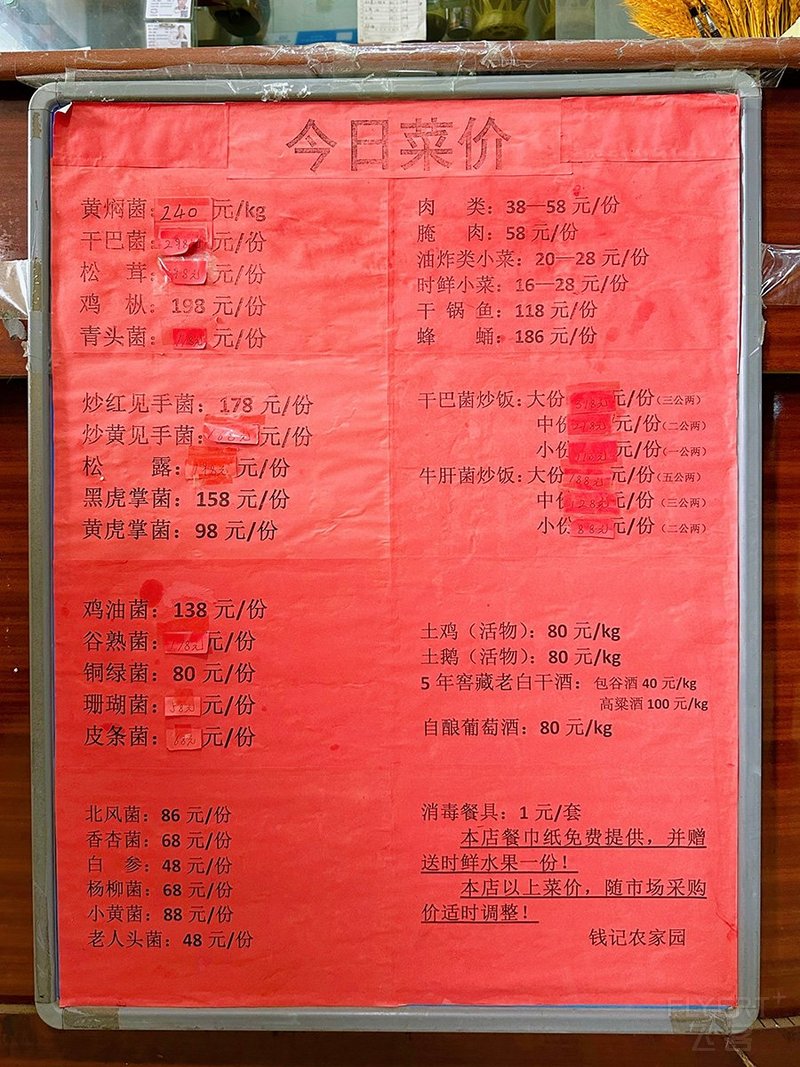 今日菜价
黄焖菌：240元/kg
干巴菌：元/份
松 茸：元/份
鸡 枞：198 元/份
青头菌：元/份
炒红见手菌：178 元/份
炒黄见手菌：元/份
松 露：元/份
黑虎掌菌：158 元/份
黄虎掌菌：98 元/份
鸡油菌：138 元/份
谷熟菌：元/份
铜绿菌：80 元/份
珊瑚菌：元/份
皮条菌：元/份
北风菌：86 元/份
香杏菌：68 元/份
白 参：48 元/份
杨柳菌：68 元/份
小黄菌：88 元/份
老人头菌：48 元/份
肉 类：38—58 元/份
腌 肉：58 元/份
油炸类小菜：20—28 元/份
时鲜小菜：16—28 元/份
干 锅 鱼：118 元/份
蜂 蛹：186 元/份
干巴菌炒饭：大份 元/份（三公两）
中份 元/份（二公两）
小份 元/份（一公两）
牛肝菌炒饭：大份 188元/份（五公两）
中份 128元/份（三公两）
小份 88元/份（二公两）
土鸡（活物）：80 元/kg
土鹅（活物）：80 元/kg
5 年窖藏老白干酒：包谷酒 40 元/kg
高粱酒 100 元/kg
自酿葡萄酒：80 元/kg
消毒餐具：1 元/套
本店餐巾纸免费提供，并赠
送时鲜水果一份！
本店以上菜价，随市场采购
价适时调整！
钱记农家园
FLYERT